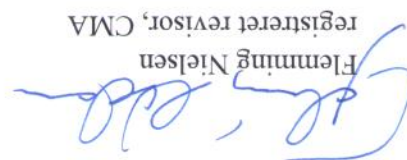 Flemming Nielsen
registreret revisor, CMA